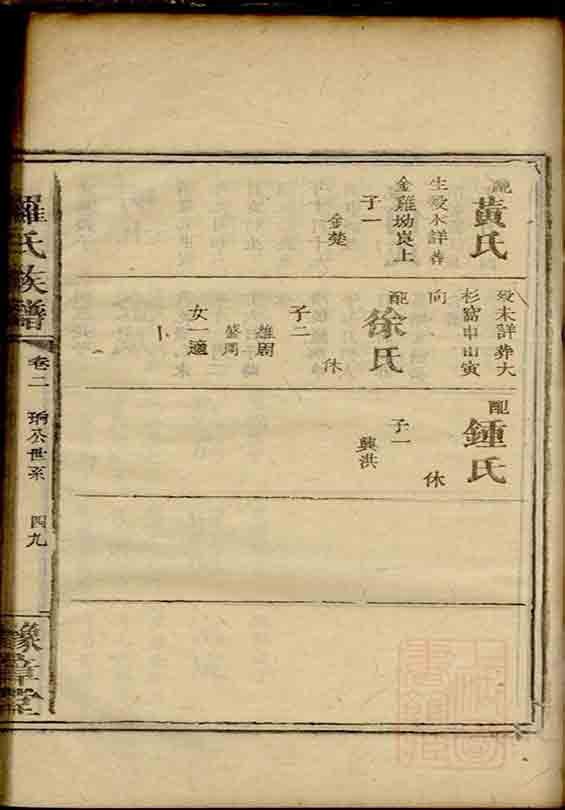 配
黃氏
生歿未詳葬
金雞坳崀上
子一
金楚
歿未詳葬大
杉窩申山寅
向
配
徐氏
休
子二
雄周
盛周
女一適
配
鍾氏
休
子一
興洪
羅氏族譜
卷二
珦公世系
四九
豫章堂